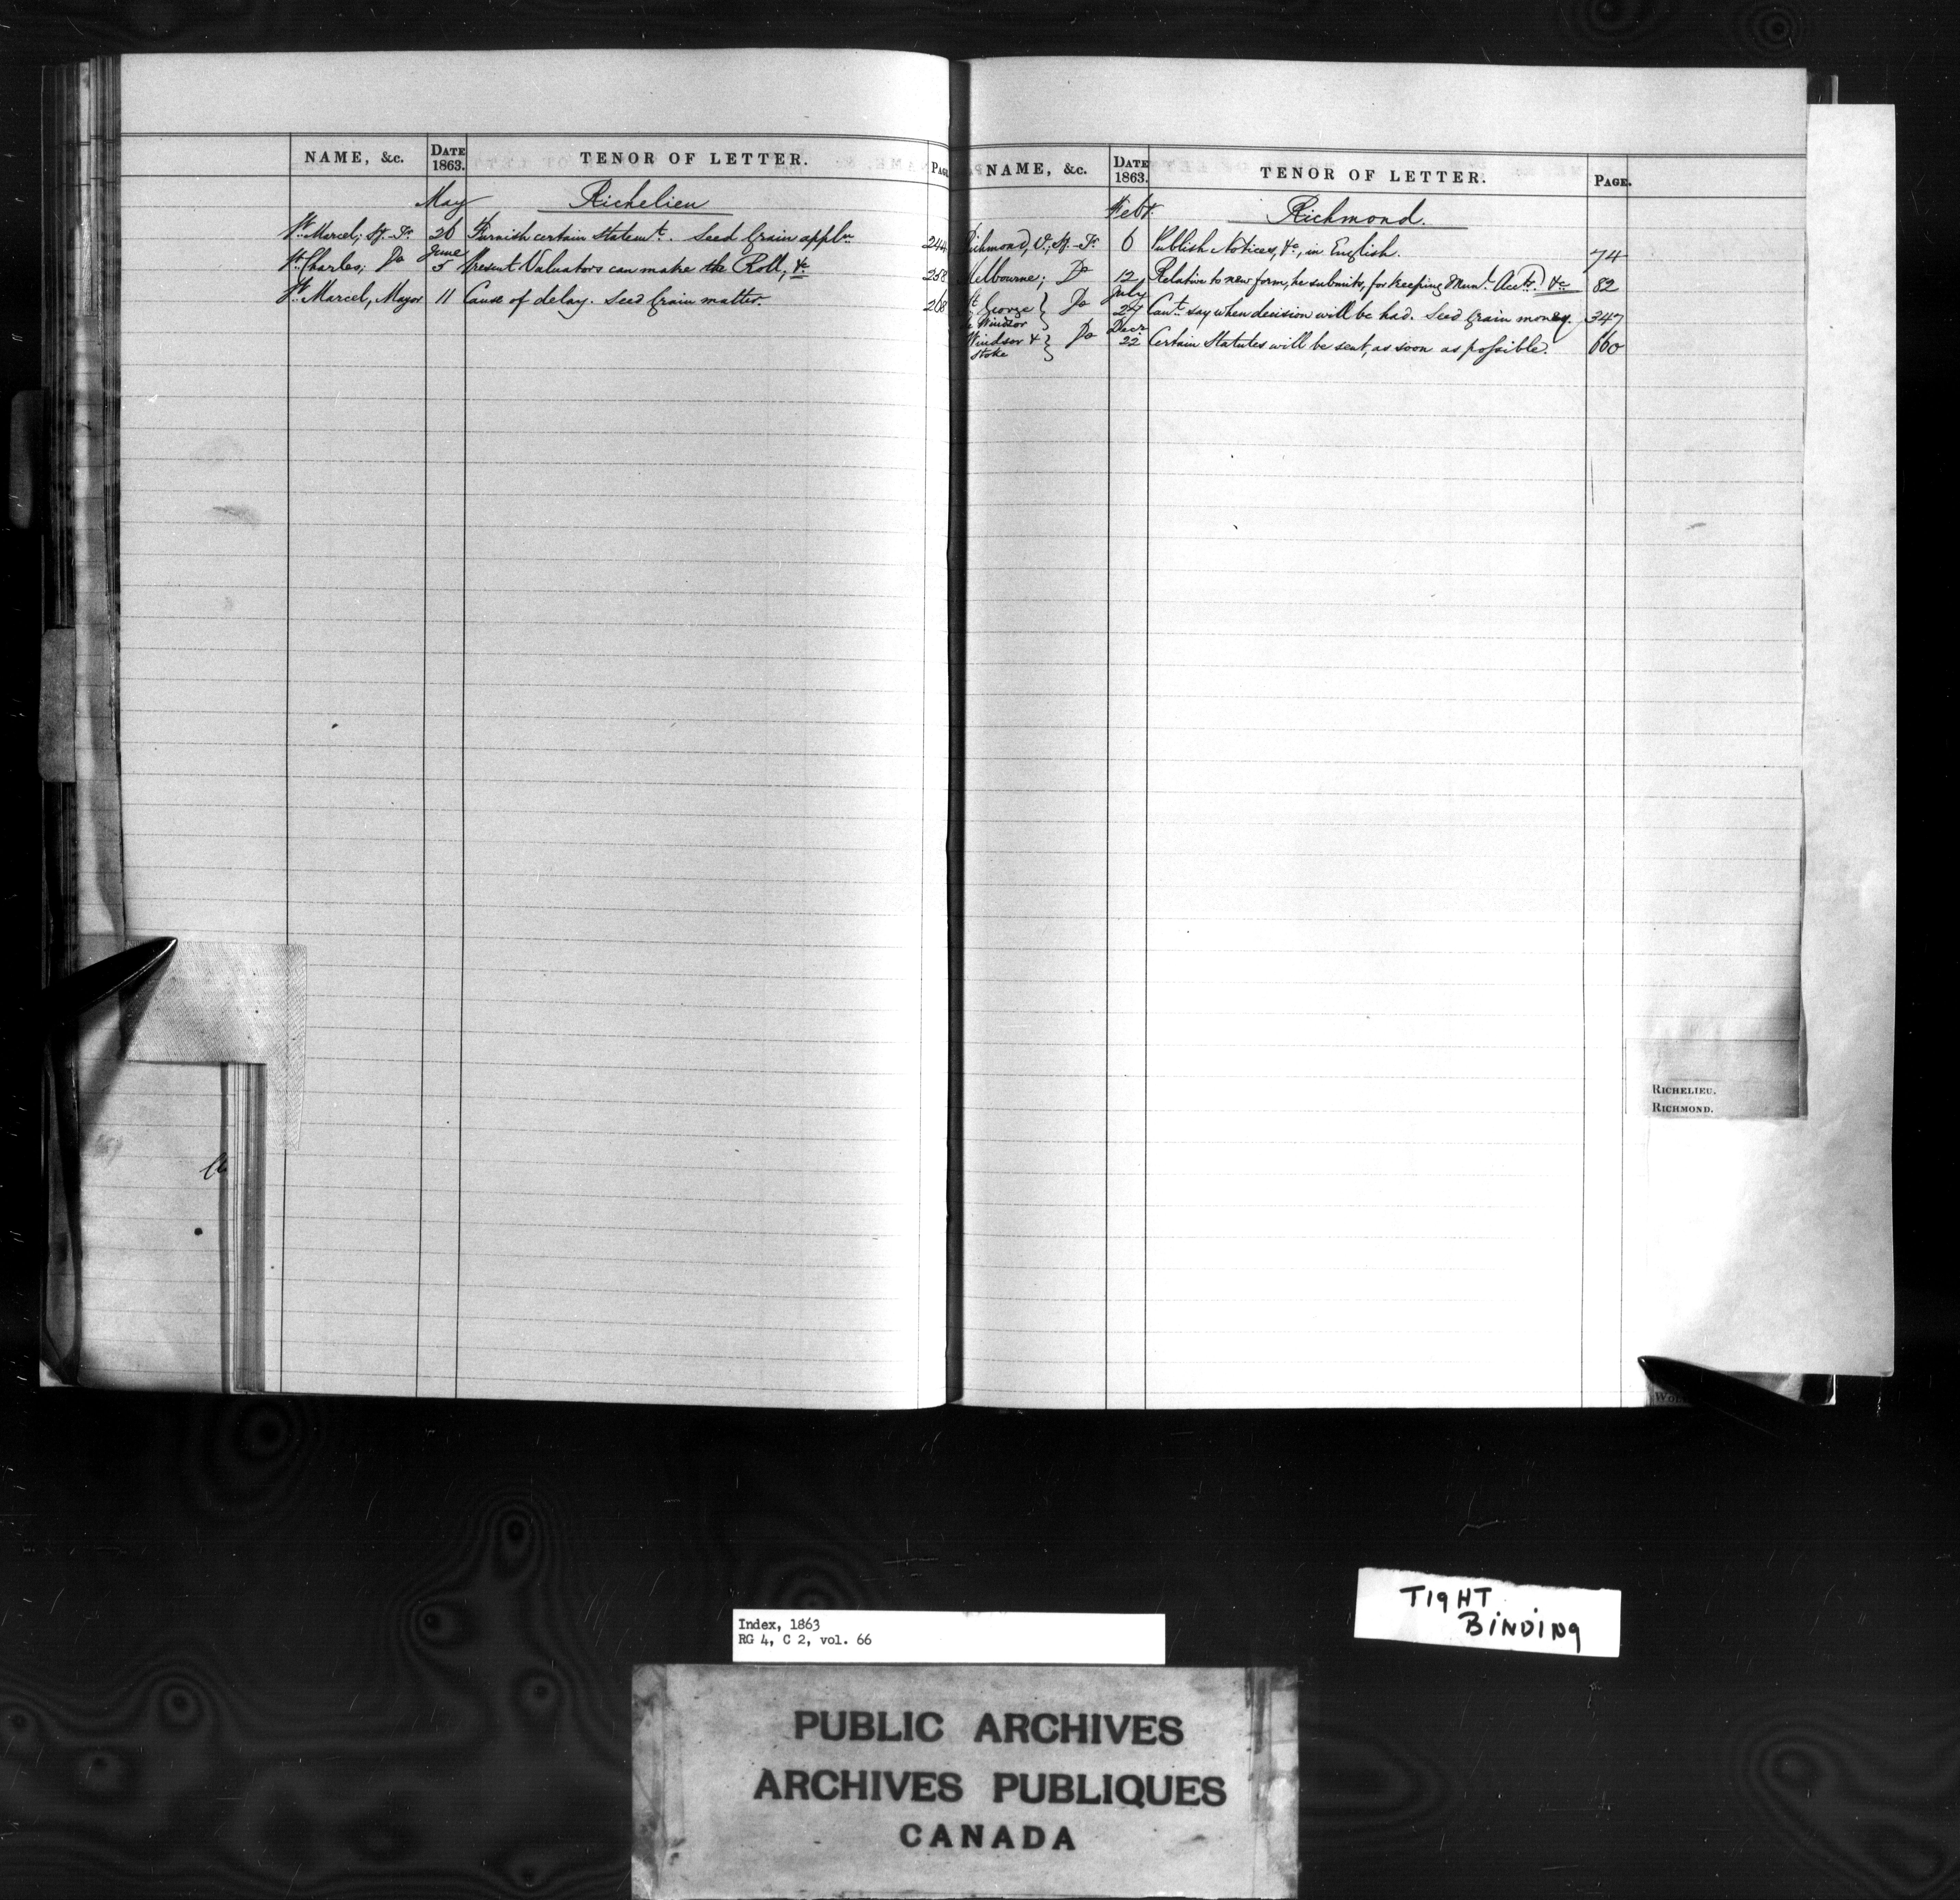 NAME, &c. DATE 1863. TENOR OF LETTER. PAGE
May Richelieu
St. Marcel; Sy.-Tr. 26 Furnish certain Statemt. Seed Grain appln. 244
June
St. Charles; Do 5 Present Valuators can make the Roll, &c 258
St. Marcel, Mayor 11 Cause of delay. Seed Grain matter. 268
NAME, &c. DATE 1863. TENOR OF LETTER. PAGE.
Feby. Richmond.
Richmond, V.; Sy.-Tr. 6 Publish Notices, &c, in English. 74
Melbourne; Do 12 Relative to new form, he submits, for keeping Munl. Accts. &c 82
July
St. George de Windsor } Do 27 Cant. say when decision will be had. Seed Grain money. 347
Decr.
Windsor & Stoke } Do 22 Certain Statutes will be sent, as soon as possible. 660
RICHELIEU.
RICHMOND.
TIGHT
BINDING
Index, 1863
RG 4, C 2, vol. 66
PUBLIC ARCHIVES
ARCHIVES PUBLIQUES
CANADA